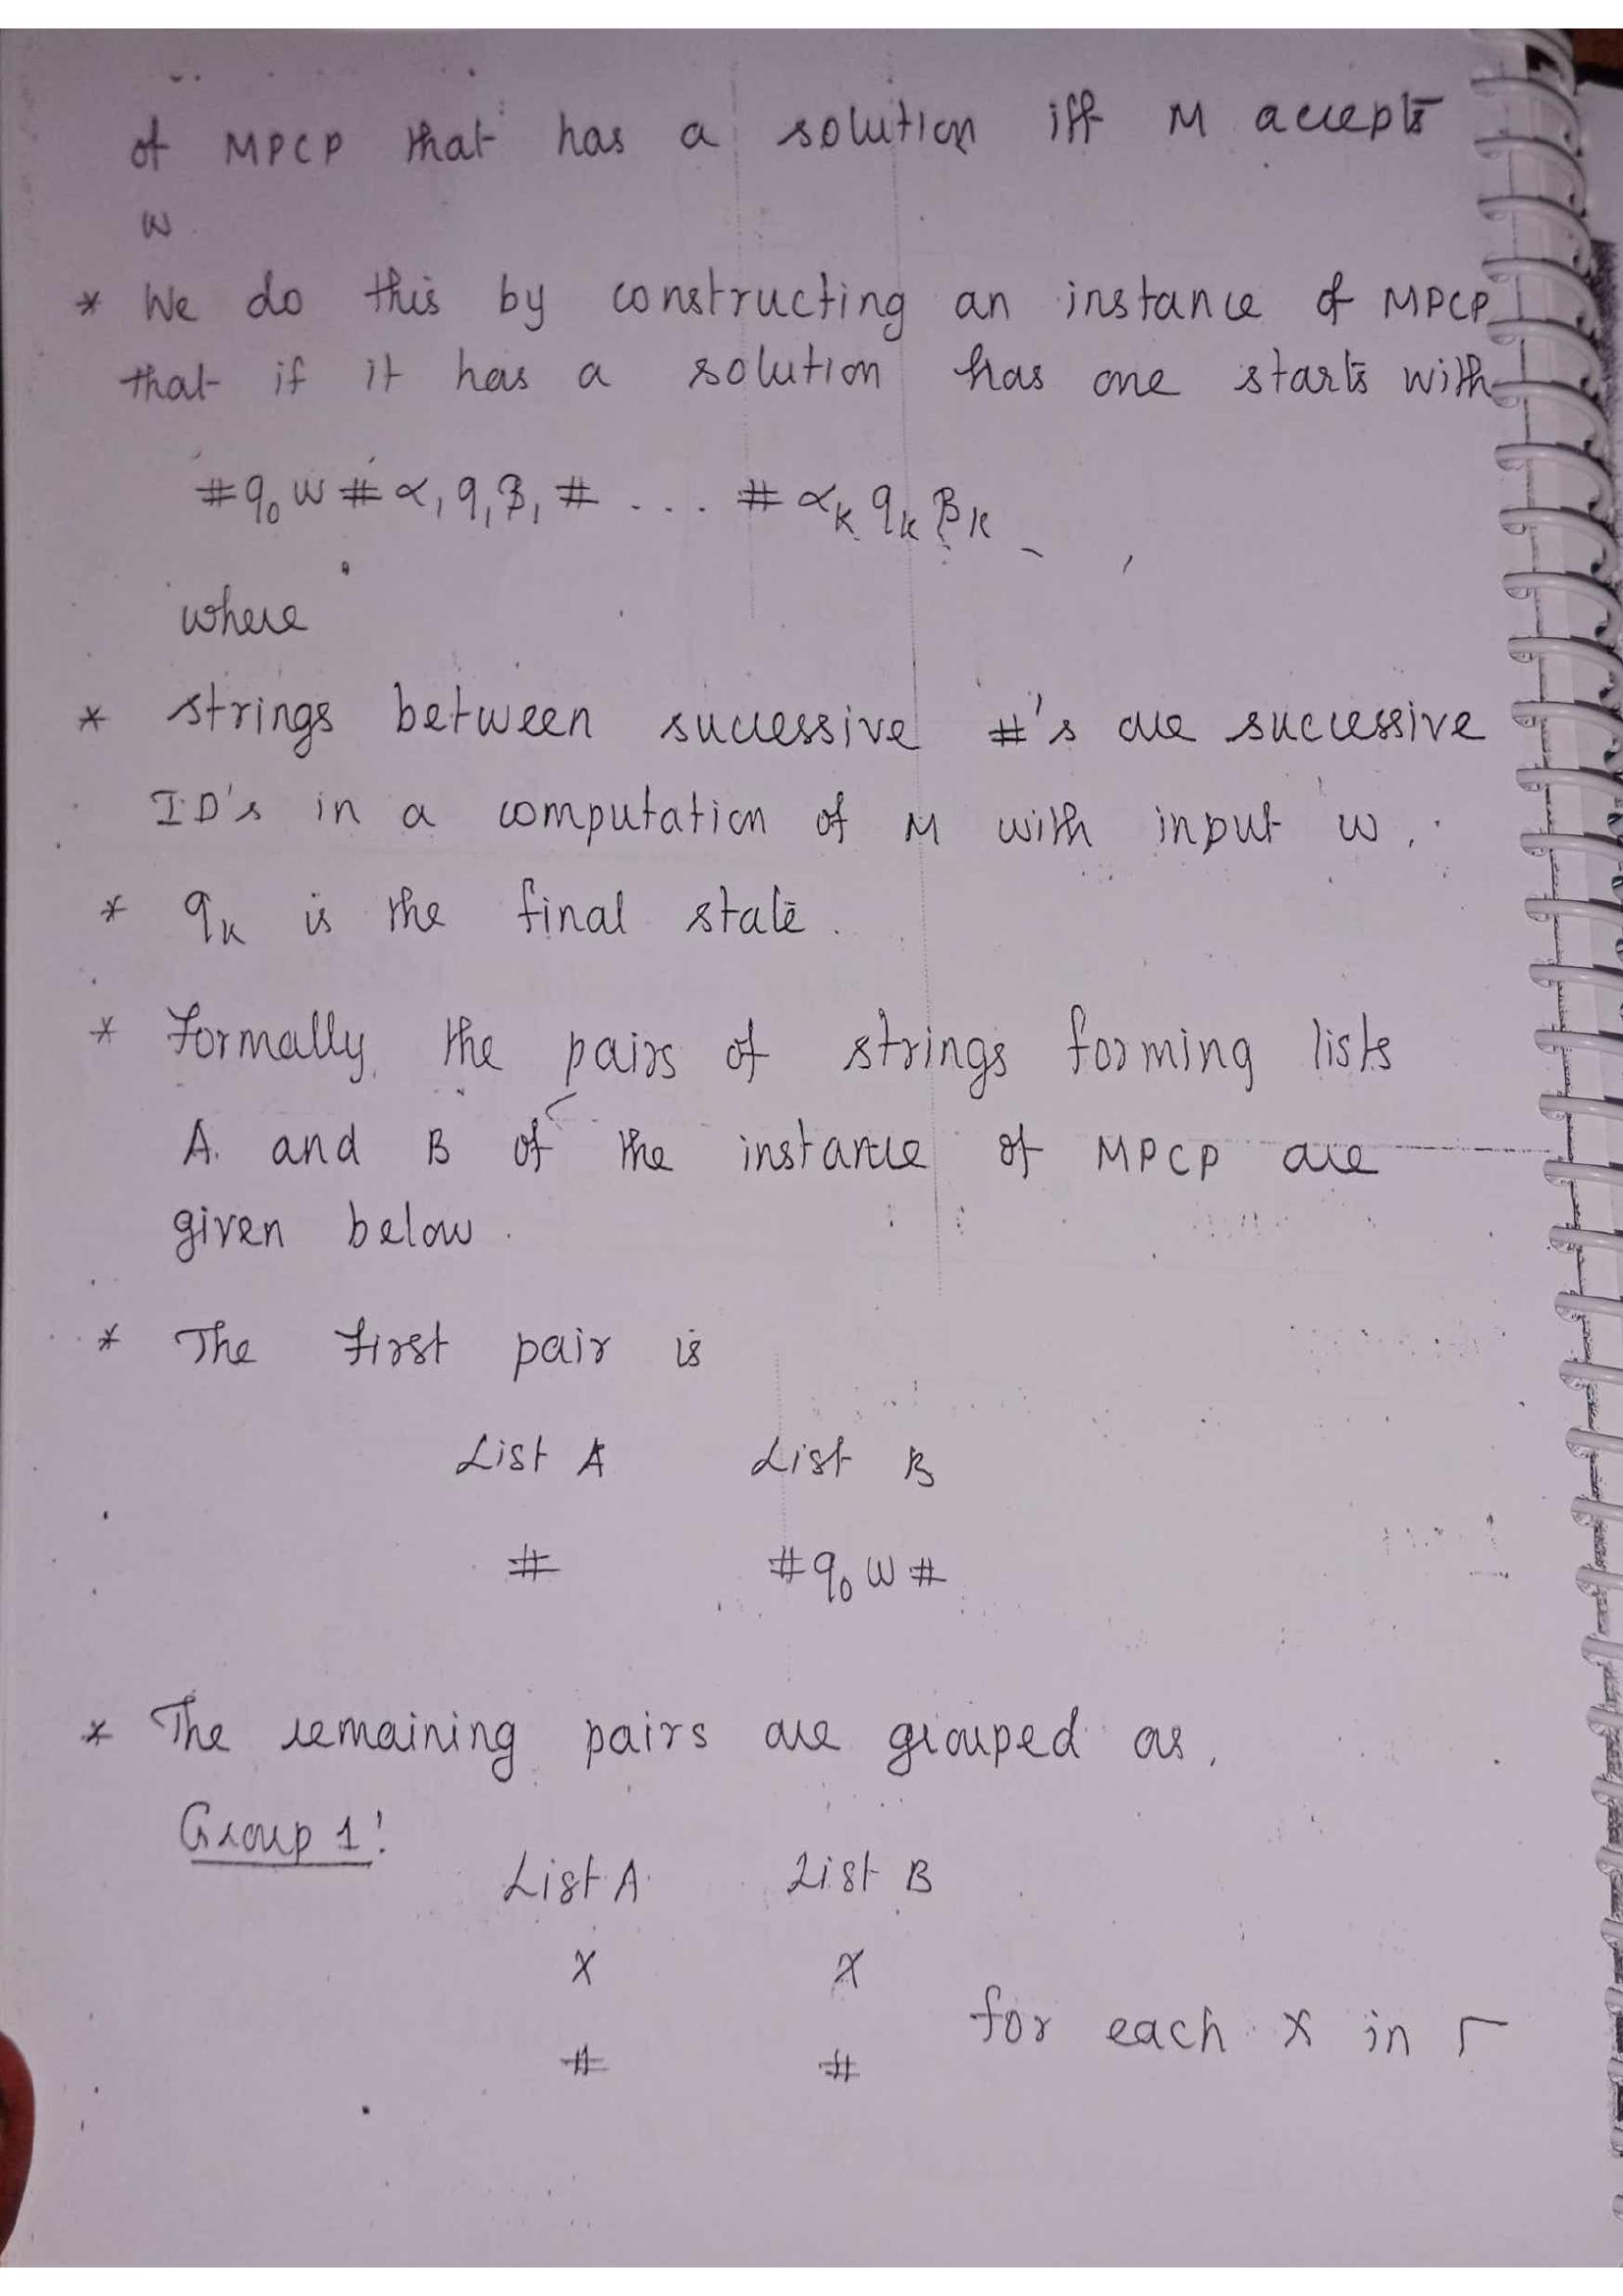 of MPCP that has a solution iff M accepts
w
* We do this by constructing an instance of MPCP
that if it has a solution has one starts with
#q₀w#α₁q₁β₁# ... #αₖqₖβₖ
where
* strings between successive #'s are successive
ID's in a computation of M with input w.
* qₖ is the final state.
* Formally, the pairs of strings forming lists
A and B of the instance of MPCP are
given below.
* The first pair is
List A List B
# #q₀w#
* The remaining pairs are grouped as.
Group 1:
List A List B
X X
for each X in Γ
# #